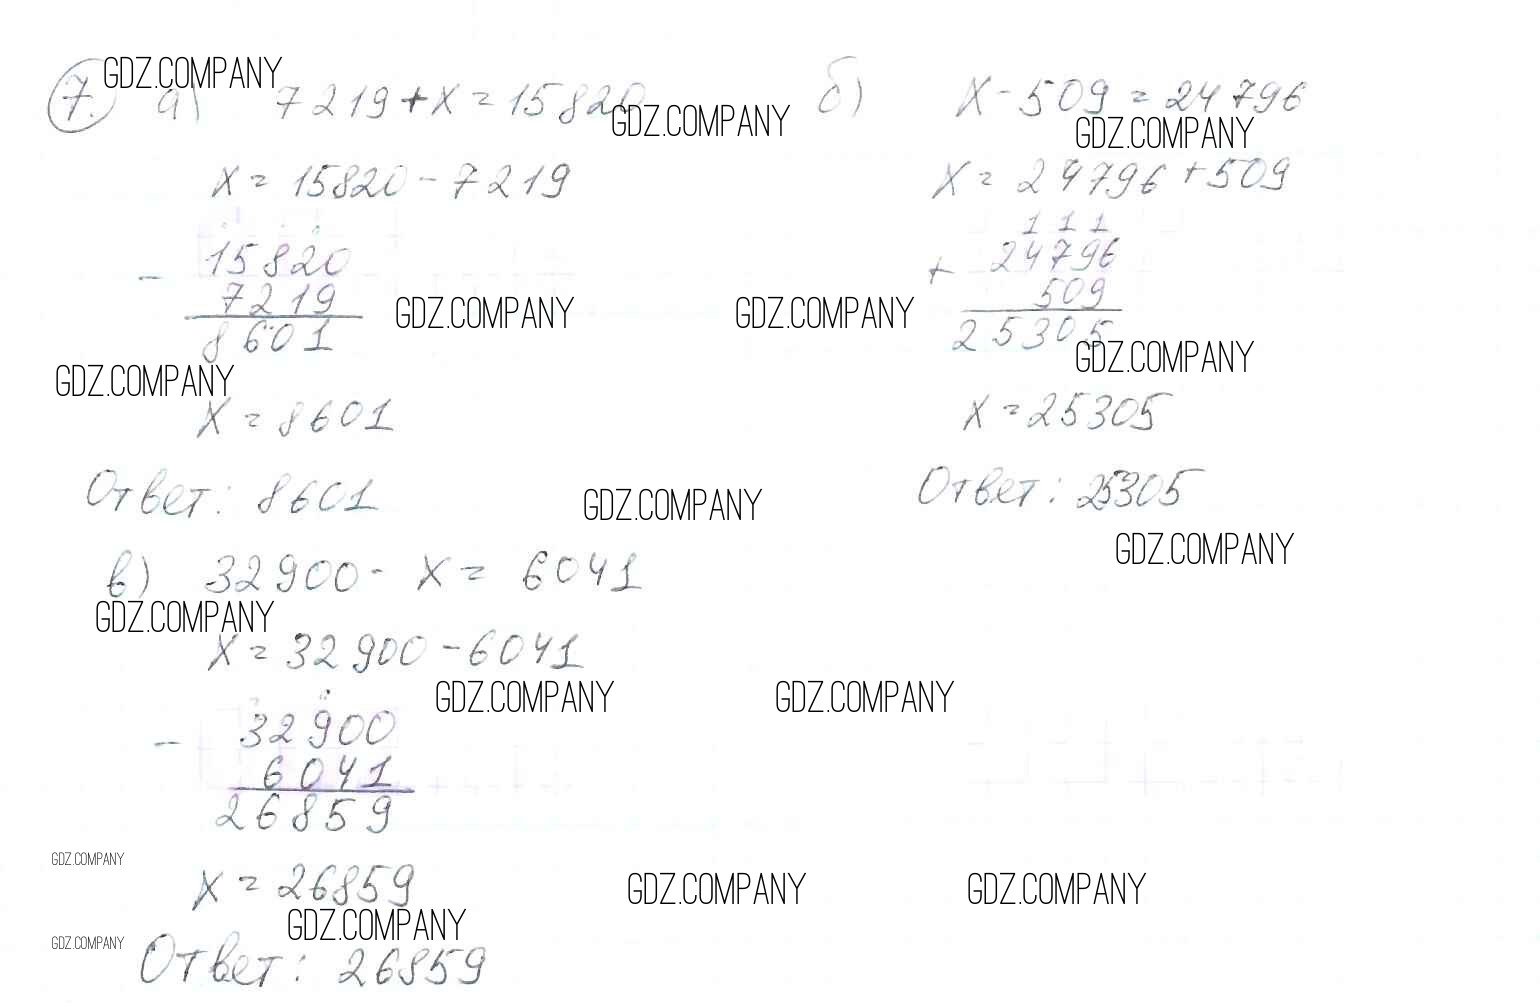 GDZ.COMPANY
7. а) 7219 + х = 15820
GDZ.COMPANY
х = 15820 - 7219
- 15820
7219
8601
GDZ.COMPANY
GDZ.COMPANY
х = 8601
Ответ: 8601
GDZ.COMPANY
б) х - 509 = 24796
GDZ.COMPANY
х = 24796 + 509
1 1 1
+ 24796
509
GDZ.COMPANY
25305
GDZ.COMPANY
х = 25305
Ответ: 25305
GDZ.COMPANY
в) 32900 - х = 6041
GDZ.COMPANY
х = 32900 - 6041
GDZ.COMPANY
GDZ.COMPANY
- 32900
6041
26859
GDZ.COMPANY
х = 26859
GDZ.COMPANY
GDZ.COMPANY
GDZ.COMPANY
GDZ.COMPANY
Ответ: 26859